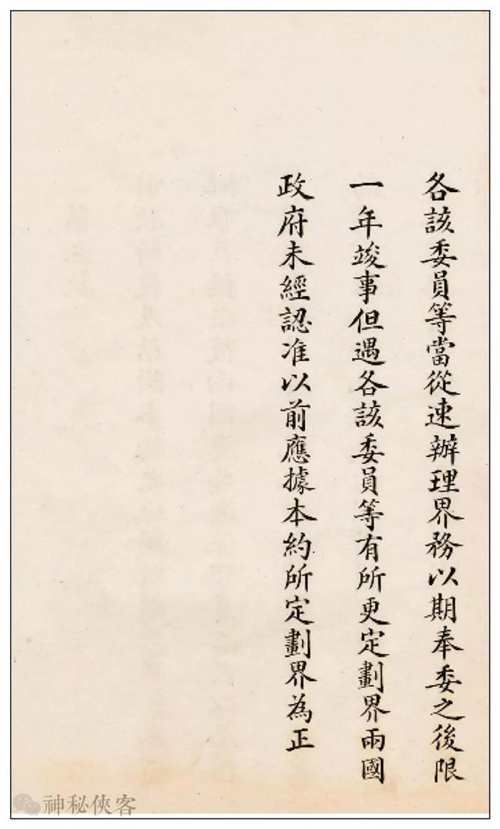 各該委員等當從速辦理界務以期奉委之後限
一年竣事但遇各該委員等有所更定劃界兩國
政府未經認准以前應據本約所定劃界為正
神秘侠客